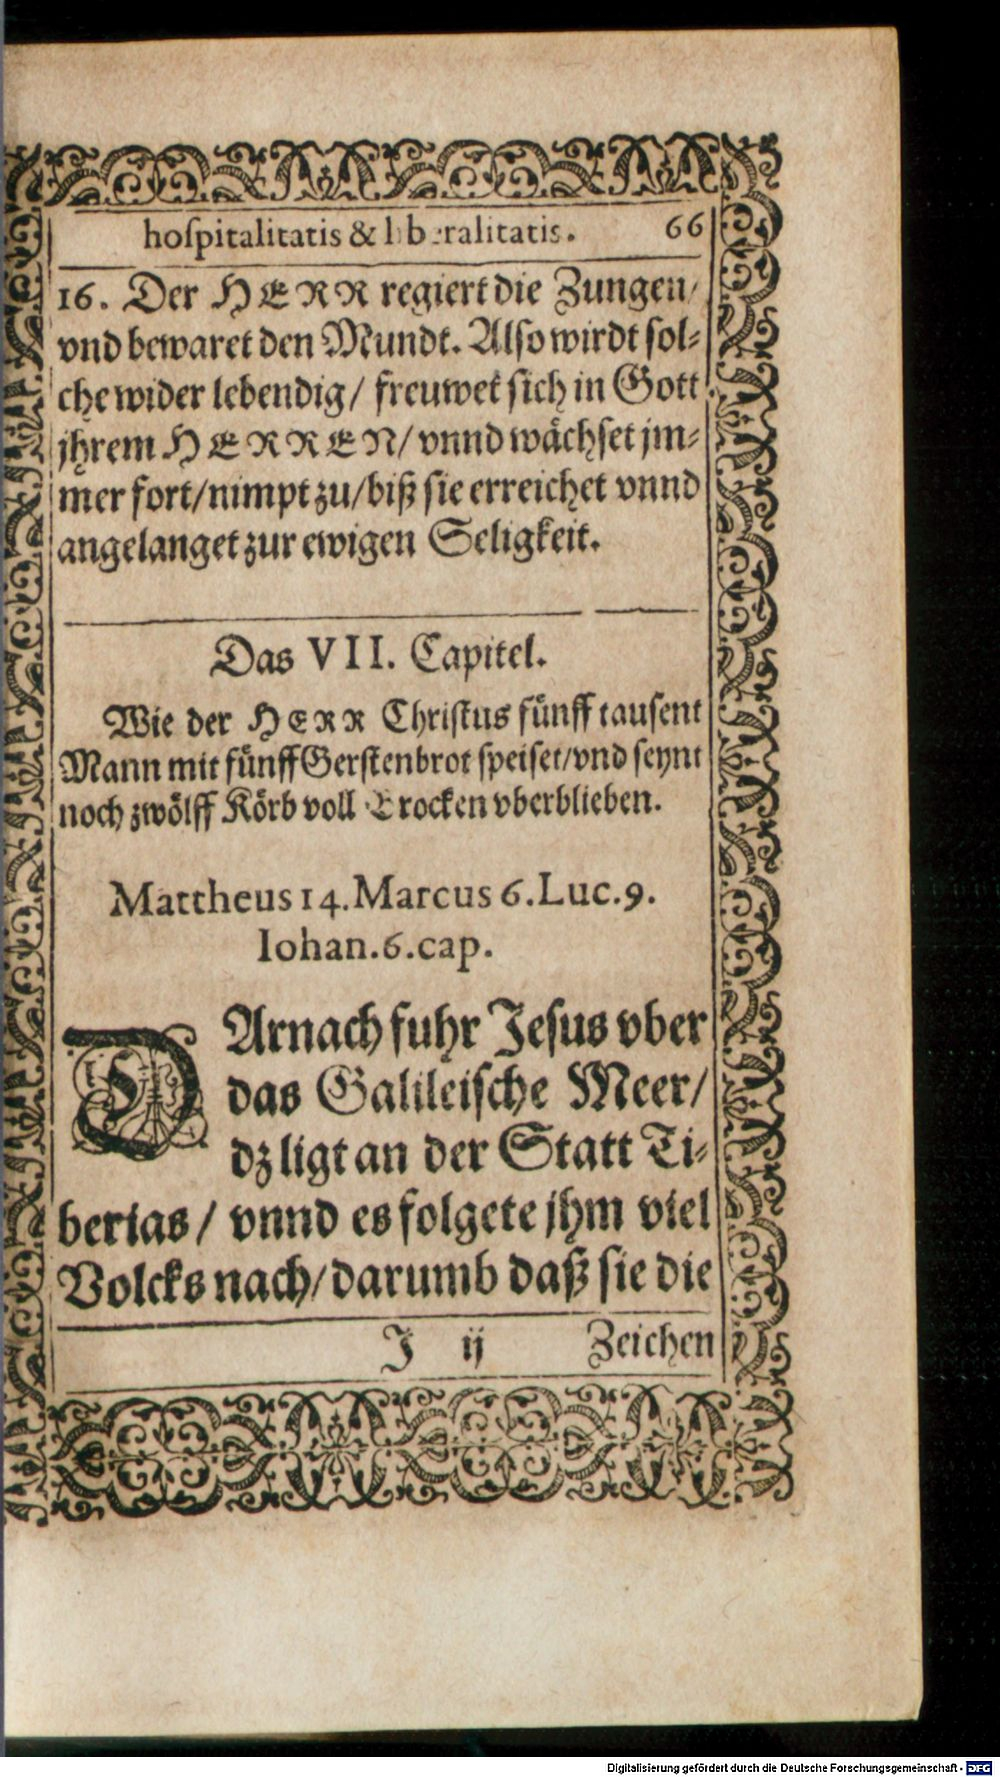 hoſpitalitatis & liberalitatis. 66
16. Der HERR regiert die Zungen/
vnd bewaret den Mundt. Alſo wirdt ſol⸗
che wider lebendig/ freuwet ſich in Gott
jhrem HERREN/ vnnd wächſet jm⸗
mer fort/nimpt zu/biß ſie erreichet vnnd
angelanget zur ewigen Seligkeit.
Das VII. Capitel.
Wie der HERR Chriſtus fünff tauſent
Mann mit fünff Gerſtenbrot ſpeiſet/vnd ſeynt
noch zwölff Körb voll Brocken vberblieben.
Mattheus 14. Marcus 6. Luc. 9.
Iohan. 6. cap.
DArnach fuhr Jeſus vber
das Galileiſche Meer/
dz ligt an der Statt Ti⸗
berias/ vnnd es folgete jhm viel
Volcks nach/darumb daß ſie die
J ij Zeichen
Digitalisierung gefördert durch die Deutsche Forschungsgemeinschaft - DFG